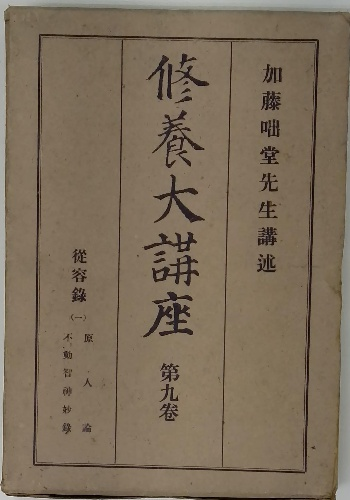 加藤咄堂先生講述
修養大講座 第九巻
從容錄(一)
原人論
不動智神妙錄